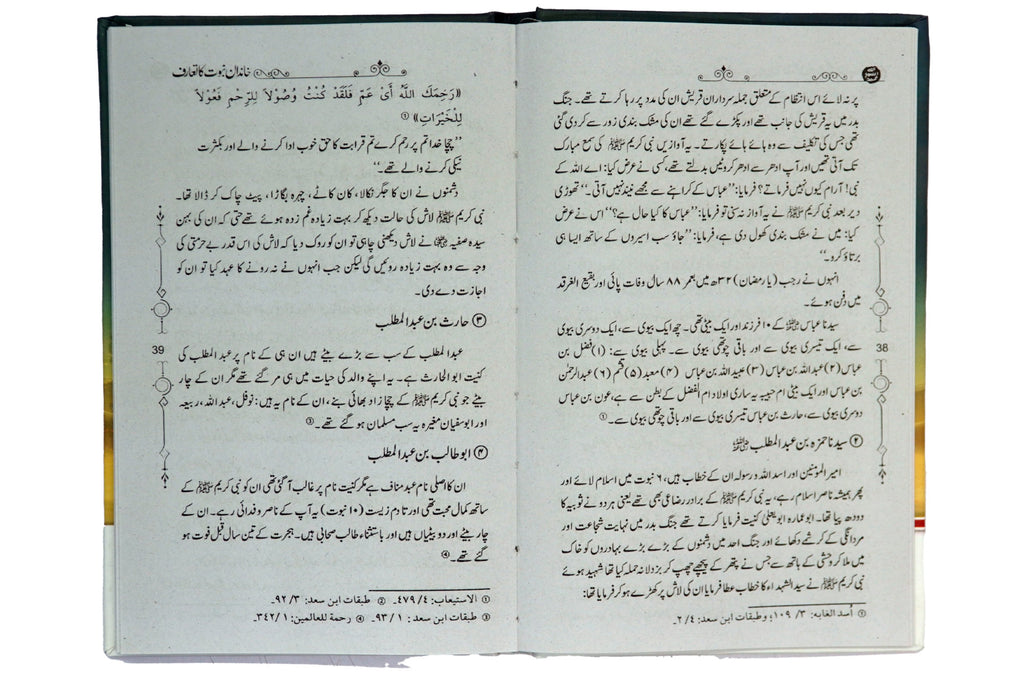 پر نہ لائے اس انتظام کے متعلق جملہ سرداران قریش ان کی مدد پر رہا کرتے تھے۔ جنگ
بدر میں یہ قریش کی جانب تھے اور پکڑے گئے تھے ان کی مشک بندی زور سے کر دی گئی
تھی جس کی تکلیف سے وہ ہائے ہائے پکارتے۔ یہ آوازیں نبی کریم ﷺ کی سمع مبارک
تک آتی تھیں اور آپ ادھر سے ادھر کروٹیں بدلتے تھے، کسی نے عرض کیا: اے اللہ کے
نبی! آرام کیوں نہیں فرماتے؟ فرمایا: ”عباس کے کراہنے سے مجھے نیند نہیں آتی۔“ تھوڑی
دیر بعد نبی کریم ﷺ نے یہ آواز نہ سنی تو فرمایا: ”عباس کا کیا حال ہے؟“ اس نے عرض
کیا: میں نے مشک بندی کھول دی ہے، فرمایا: ”جاؤ سب اسیروں کے ساتھ ایسا ہی
برتاؤ کرو۔“
انہوں نے رجب (یا رمضان) ۳۲ھ میں بعمر ۸۸ سال وفات پائی اور بقیع الغرقد
میں دفن ہوئے۔
سیدنا عباس ؓ کے ۱۰ فرزند اور ایک بیٹی تھی۔ چھ ایک بیوی سے، ایک دوسری بیوی
سے، ایک تیسری بیوی سے اور باقی چوتھی بیوی سے۔ پہلی بیوی سے: (۱) فضل بن
عباس (۲) عبداللہ بن عباس (۳) عبیداللہ بن عباس (۴) معبد (۵) قثم (۶) عبدالرحمٰن
بن عباس اور ایک بیٹی ام حبیبہ یہ ساری اولاد ام الفضل کے بطن سے ہے، عون بن عباس
دوسری بیوی سے، حارث بن عباس تیسری بیوی سے اور باقی چوتھی بیوی سے۔ ①
② سیدنا حمزہ بن عبدالمطلب ؓ
امیر المؤمنین اور اسد اللہ ورسولہ ان کے خطاب ہیں، ۶ نبوت میں اسلام لائے اور
پھر ہمیشہ ناصر اسلام رہے، یہ نبی کریم ﷺ کے برادر رضاعی بھی تھے یعنی ہر دو نے ثویبہ کا
دودھ پیا تھا۔ ابوعمارہ ابویعلیٰ کنیت فرمایا کرتے تھے جنگ بدر میں نہایت شجاعت اور
مردانگی کے کرشمے دکھائے اور جنگ احد میں دشمنوں کے بڑے بڑے بہادروں کو خاک
میں ملا کر وحشی کے ہاتھ سے جس نے پتھر کے پیچھے چھپ کر بزدلانہ حملہ کیا تھا شہید ہوئے
نبی کریم ﷺ نے سید الشہداء کا خطاب عطا فرمایا ان کی لاش پر کھڑے ہو کر فرمایا تھا:
① أسد الغابه: ۳/ ۱۰۹؛ وطبقات ابن سعد: ۴/ ۲۔
38
خاندان نبوت کا تعارف
«رَحِمَكَ اللّٰهُ أَيْ عَمِّ فَلَقَدْ كُنْتُ وَصُوْلًا لِلرَّحْمِ فَعُوْلًا
لِلْخَيْرَاتِ» ①
”چچا خدا تم پر رحم کرے تم قرابت کا حق خوب ادا کرنے والے اور بکثرت
نیکی کرنے والے تھے۔“
دشمنوں نے ان کا جگر نکالا، کان کاٹے، چہرہ بگاڑا، پیٹ چاک کر ڈالا تھا۔
نبی کریم ﷺ لاش کی حالت دیکھ کر بہت زیادہ غم زدہ ہوئے تھے حتی کہ ان کی بہن
سیدہ صفیہ ؓ نے لاش دیکھنی چاہی تو ان کو روک دیا کہ لاش کی اس قدر بے حرمتی کی
وجہ سے وہ بہت زیادہ روئیں گی لیکن جب انہوں نے نہ رونے کا عہد کیا تو ان کو
اجازت دے دی۔
③ حارث بن عبدالمطلب
عبدالمطلب کے سب سے بڑے بیٹے ہیں ان ہی کے نام پر عبدالمطلب کی
کنیت ابوالحارث ہے۔ یہ اپنے والد کی حیات میں ہی مر گئے تھے مگر ان کے چار
بیٹے جو نبی کریم ﷺ کے چچا زاد بھائی بنے، ان کے نام یہ ہیں: نوفل، عبداللہ، ربیعہ
اور ابوسفیان مغیرہ یہ سب مسلمان ہو گئے تھے۔ ③
④ ابوطالب بن عبدالمطلب
ان کا اصلی نام عبد مناف ہے مگر کنیت نام پر غالب آ گئی تھی ان کو نبی کریم ﷺ کے
ساتھ کمال محبت تھی اور تادم زیست (۱۰ نبوت) یہ آپ کے ناصر و فدائی رہے۔ ان کے
چار بیٹے اور دو بیٹیاں ہیں اور باستثناء طالب صحابی ہیں۔ ہجرت کے تین سال قبل فوت ہو
گئے تھے۔ ④
① الاستیعاب: ۴/ ۴۷۹۔ ② طبقات ابن سعد: ۳/ ۹۲۔
③ طبقات ابن سعد: ۱/ ۹۳۔ ④ رحمة للعالمین: ۱/ ۳۴۲۔
39